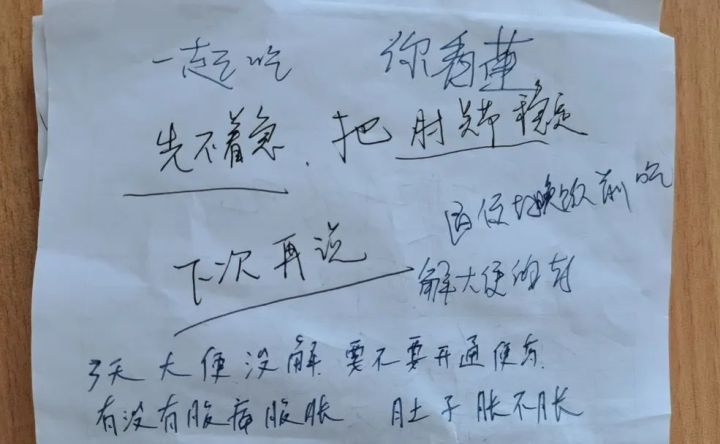 一起吃 你看
先不着急、把 肘关节 稳定
饭前吃
下次再说
解大便的
3天 大便 没解 要不要开通便药
有没有腹痛腹胀 肚子胀不胀